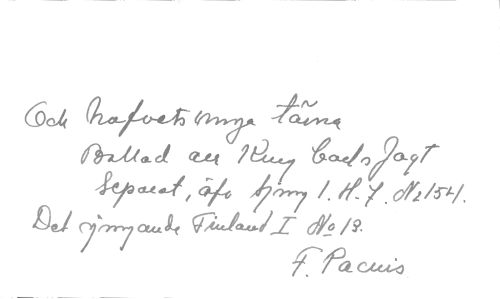 Och hafvets unga tärna
Ballad ur Kung Carls Jagt
Separat, äfv hjmg I. H. F. No 154.
Det sjungande Finland I No 19.
F. Pacius